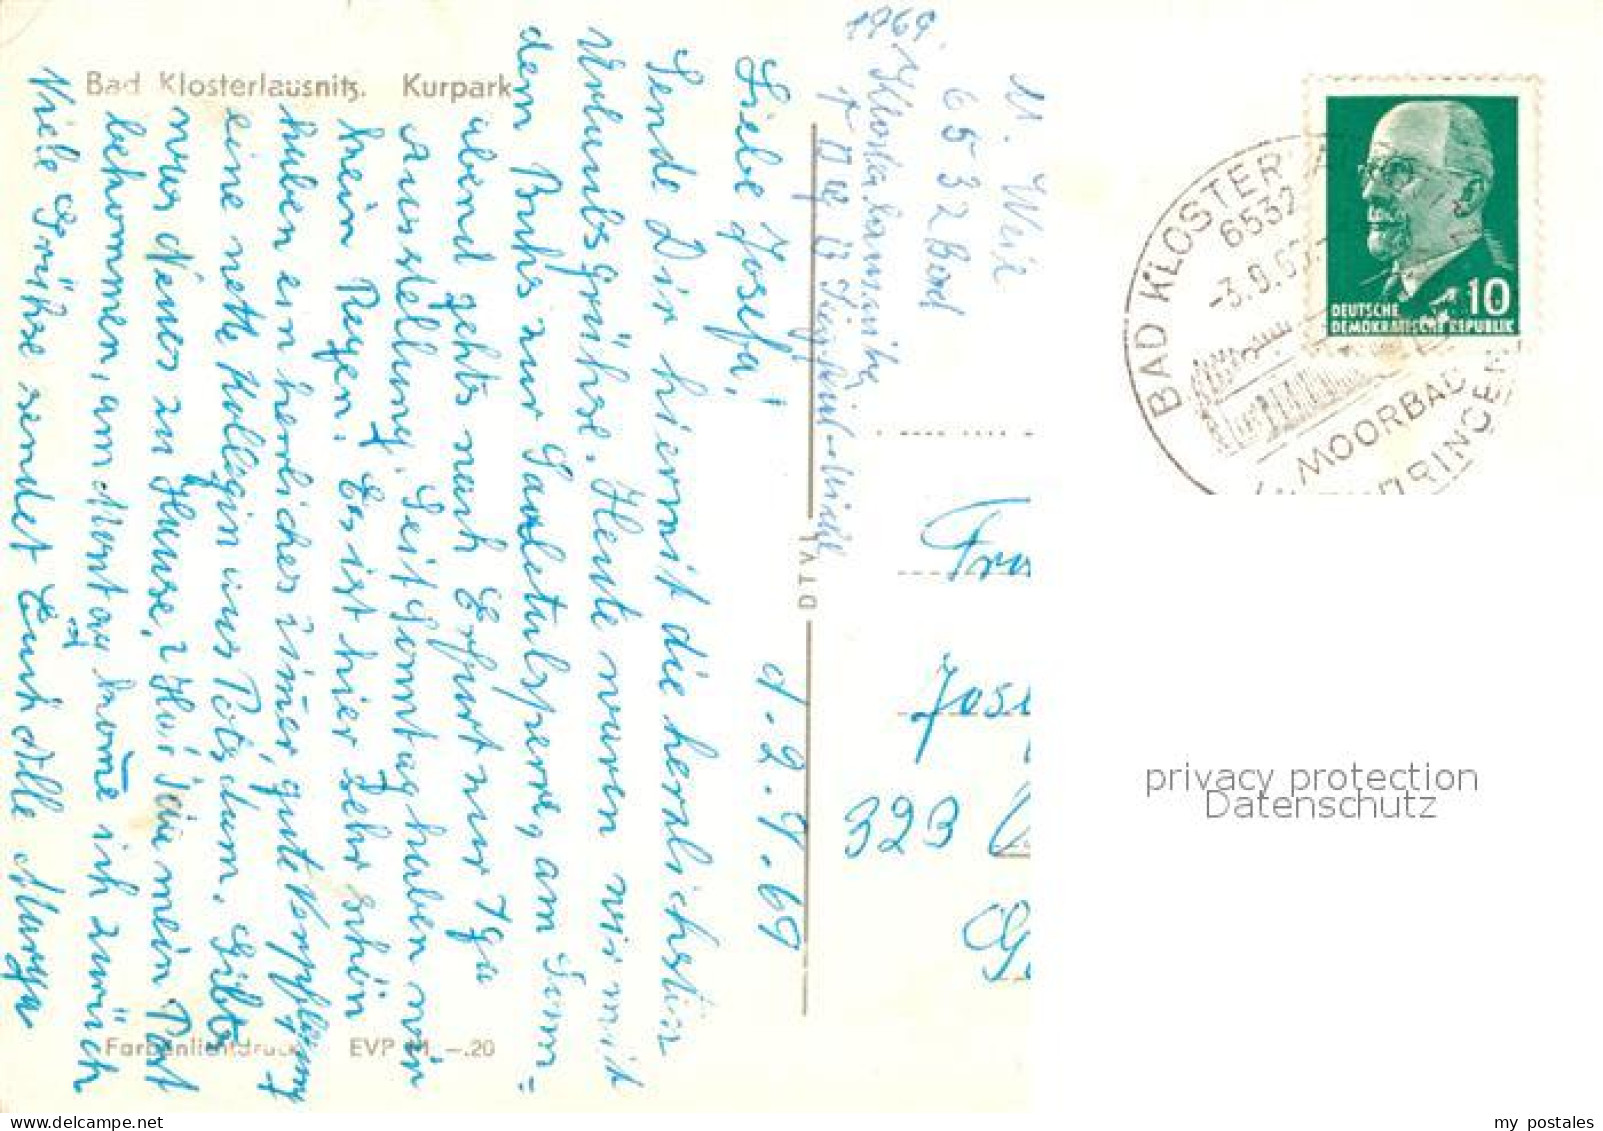 Bad Klosterlausnitz. Kurpark
d. 2.9.69
Liebe Josefa!
Sende Dir hiermit die herzlichsten
Urlaubsgrüße. Heute waren wir mit
dem Buhs zur Saaletalsperre, am Sonn=
abend gehts nach Erfurt zur Iga
Ausstellung. Seit Sonntag haben wir
kein Regen. Es ist hier sehr schön
haben ein herrliches Zimer, gute Verpflegung
eine nette Kollegin aus Potsdam. Gibts
was Neues zu Hause, 2 mein Post
bekommen, am Montag kome ich zurück
Viele Grühse sendet Euch Alle Marga
Farbenlichtdruck EVP M -.20
1969
M. Weil
6532 Bad
Klosterlausnitz
DTV
Fra
Jose
323
BAD KLOSTERLAUSNITZ
6532
-3.9.69
MOORBAD
THÜRINGEN
10
DEUTSCHE
DEMOKRATISCHE REPUBLIK
privacy protection
Datenschutz
my postales